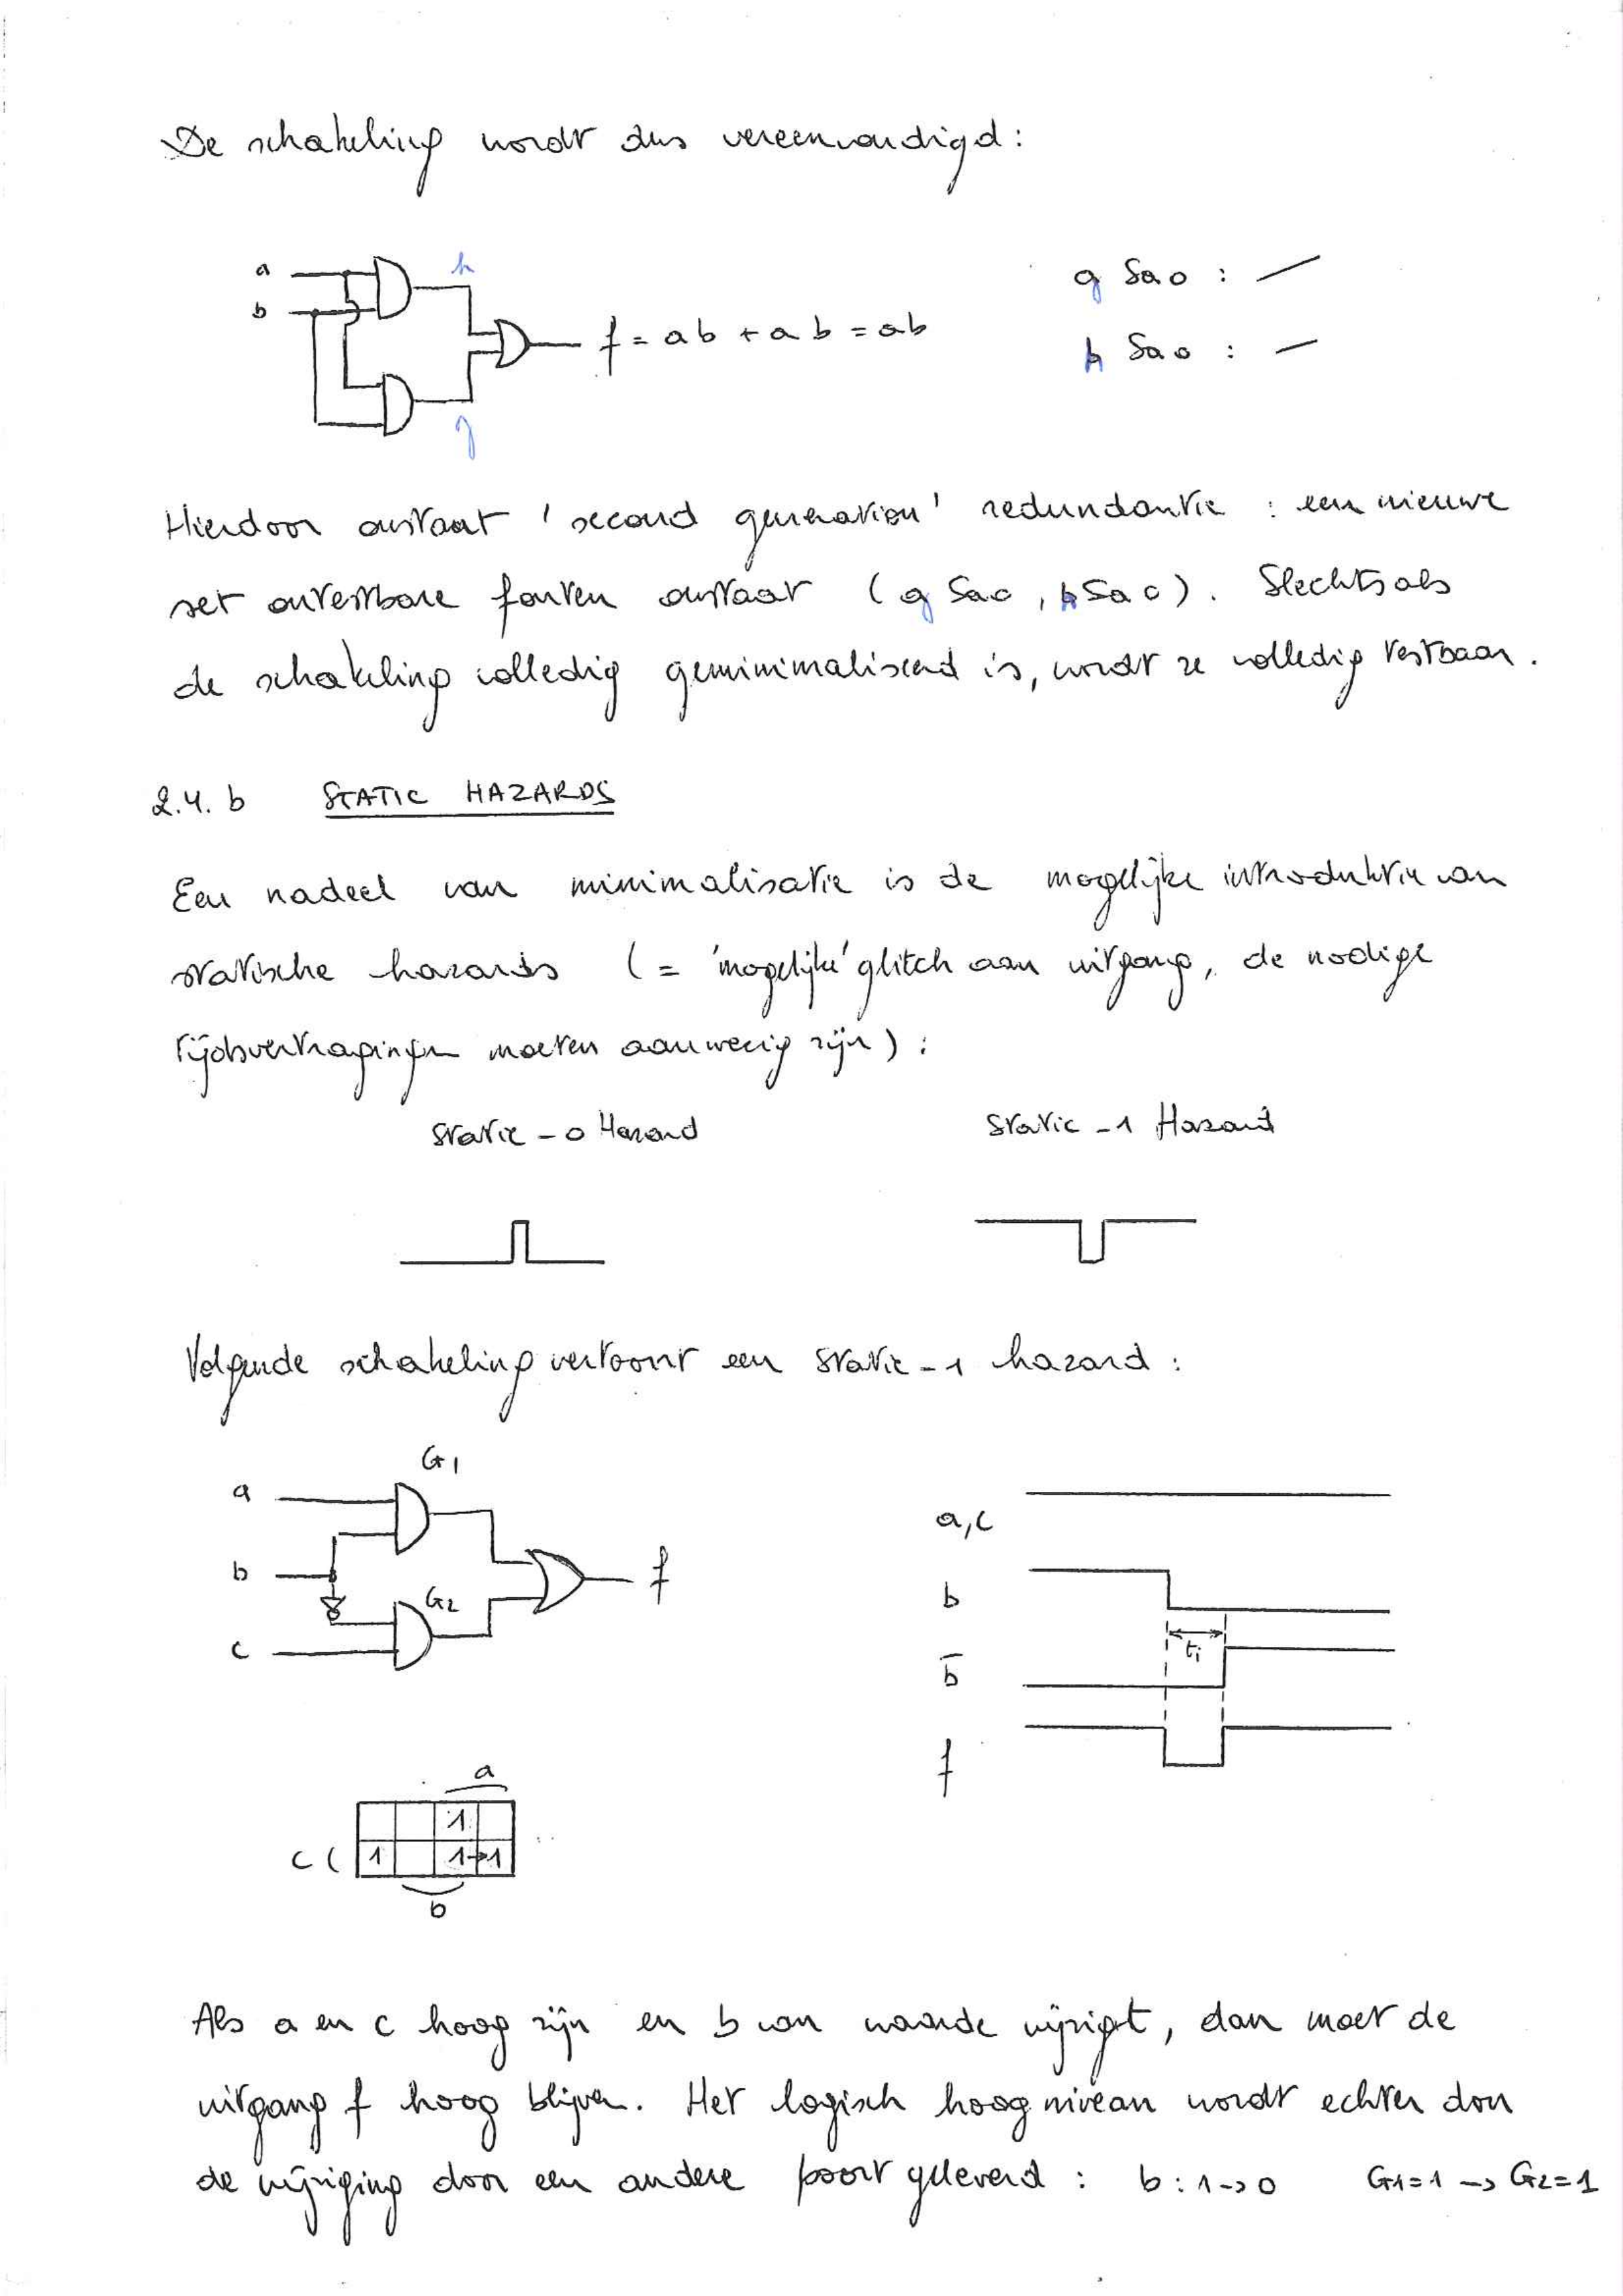 De schakeling wordt dus vereenvoudigd :
a
h
g Sa0 : —
b
f = ab + ab = ab
h Sa0 : —
g
Hierdoor ontstaat 'second generation' redundantie : een nieuwe
set ontestbare fouten ontstaat (g Sa0, h Sa0). Slechts als
de schakeling volledig geminimaliseerd is, wordt ze volledig testbaar.
2.4.b STATIC HAZARDS
Een nadeel van minimalisatie is de mogelijke introduktie van
statische hazards (= 'mogelijke' glitch aan uitgang, de nodige
tijdsvertragingen moeten aanwezig zijn) :
Static - 0 Hazard
Static - 1 Hazard
Volgende schakeling vertoont een static - 1 hazard :
G1
a
b
G2
f
c
a,c
b
ti
b̅
f
a
1
c ( 1 1→1
b
Als a en c hoog zijn en b van waarde wijzigt, dan moet de
uitgang f hoog blijven. Het logisch hoog niveau wordt echter door
de wijziging door een andere poort geleverd : b : 1→0 G1=1 → G2=1